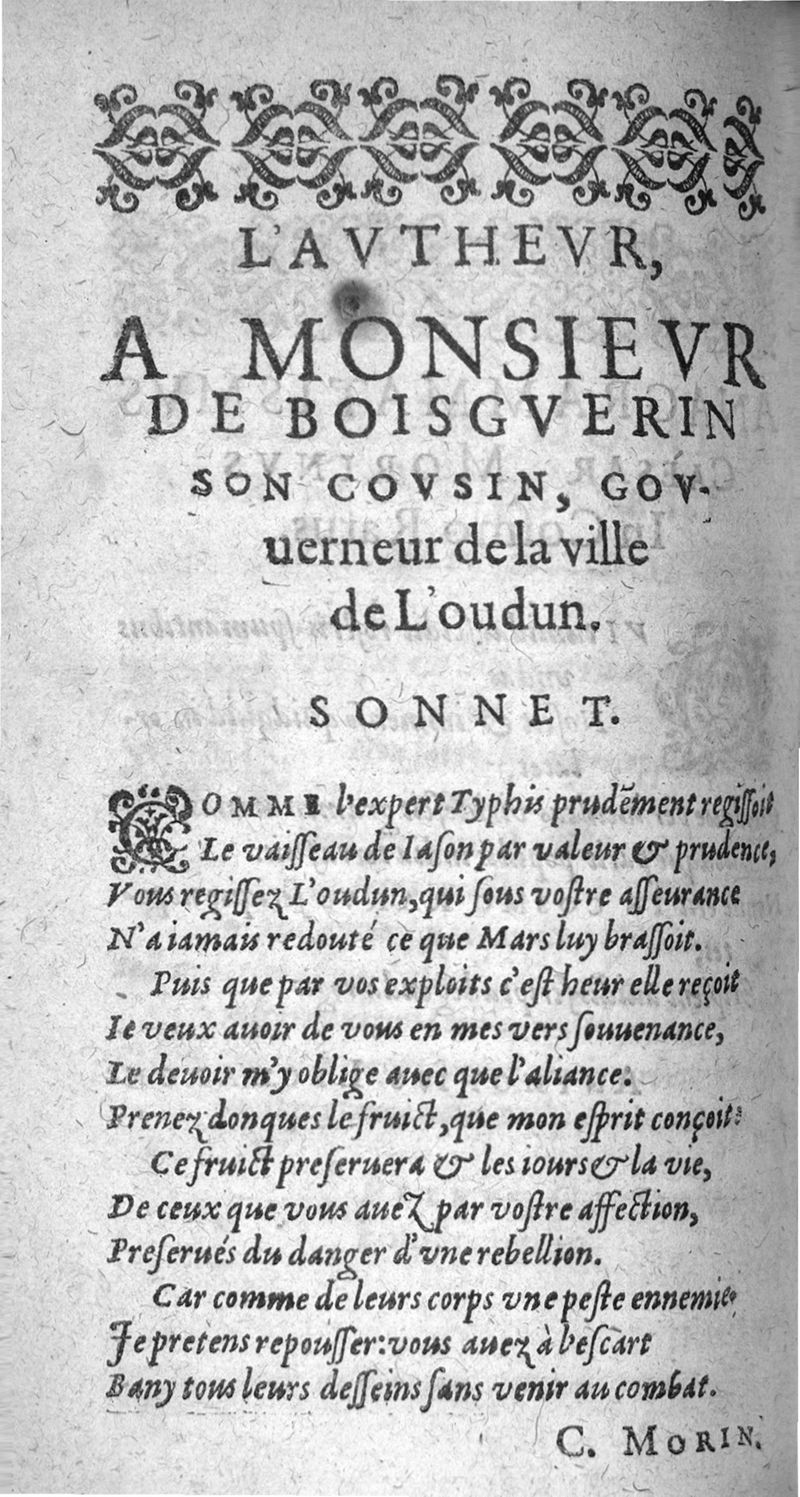 L'AVTHEVR,
A MONSIEVR
DE BOISGVERIN
SON COVSIN, GOV-
uerneur de la ville
de L'oudun.
SONNET.
COMME l'expert Typhis prudẽment regissoit
Le vaisseau de Iason par valeur & prudence,
Vous regissez L'oudun, qui sous vostre asseurance
N'a iamais redouté ce que Mars luy brassoit.
Puis que par vos exploits c'est heur elle reçoit
Ie veux auoir de vous en mes vers souuenance,
Le deuoir m'y oblige auec que l'aliance.
Prenez donques le fruict, que mon esprit conçoit:
Ce fruict preseruera & les iours & la vie,
De ceux que vous auez par vostre affection,
Preserués du danger d'vne rebellion.
Car comme de leurs corps vne peste ennemie
Je pretens repousser: vous auez à l'escart
Bany tous leurs desseins sans venir au combat.
C. MORIN.